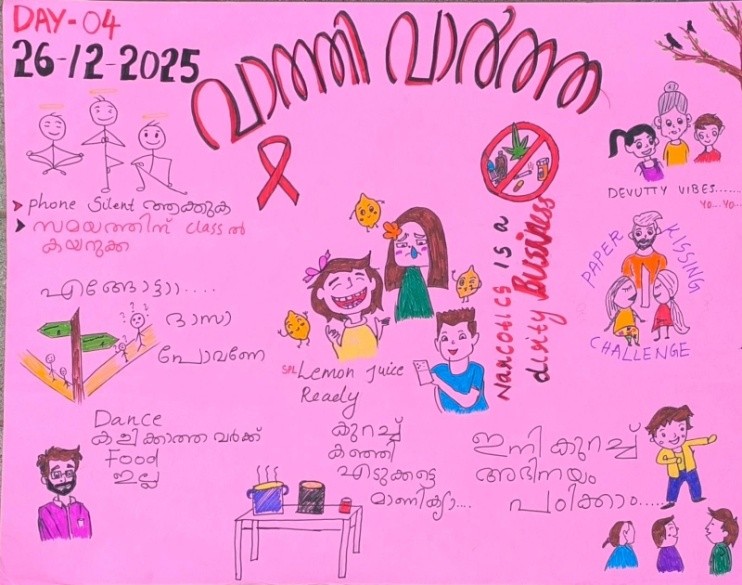 DAY-04
26-12-2025
വാത്തി വാർത്ത
phone Silent ആക്കുക
സമയത്തിന് class ൽ
കയറുക്ക
എങ്ങോട്ടാ.....
ദാസാ
പോവണേ
SPL Lemon juice
Ready
Narcotics is a
dirity Bussiness
DEVUTTY VIBES......
YO...YO...
PAPER KISSING
CHALLENGE
Dance
കളിക്കാത്തവർക്ക്
Food
ഇല്ല
കുറച്ച്
കഞ്ഞി
എടുക്കട്ടെ
മാണിക്യാ....
ഇനി കുറച്ച്
അഭിനയം
പഠിക്കാം.....